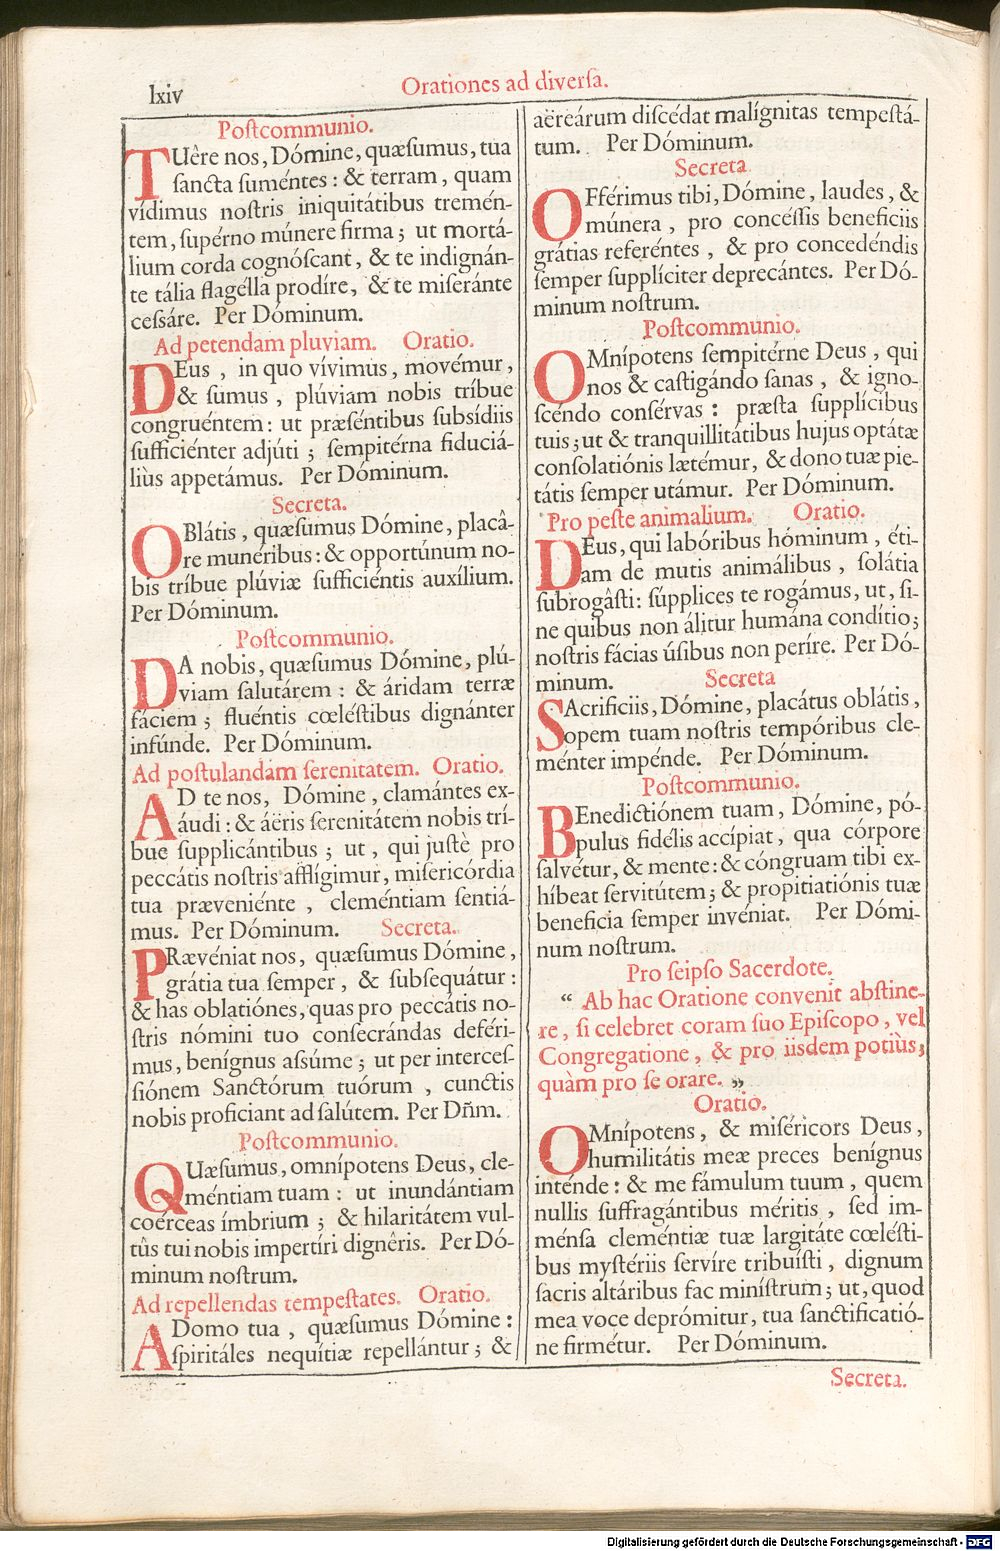 lxiv
Orationes ad diverſa.
Poſtcommunio.
TUêre nos, Dómine, quæſumus, tua
ſancta ſuméntes : & terram, quam
vídimus noſtris iniquitátibus tremén-
tem, ſupérno múnere firma ; ut mortá-
lium corda cognóſcant, & te indignán-
te tália flagélla prodíre, & te miſeránte
ceſsáre. Per Dóminum.
Ad petendam pluviam. Oratio.
DEus , in quo vívimus, movémur,
& ſumus , plúviam nobis tríbue
congruéntem: ut præſéntibus ſubsídiis
ſufficiénter adjúti ; ſempitérna fiduciá-
liùs appetámus. Per Dóminum.
Secreta.
OBlátis, quæſumus Dómine, placâ-
re munéribus: & opportúnum no-
bis tríbue plúviæ ſufficiéntis auxílium.
Per Dóminum.
Poſtcommunio.
DA nobis, quæſumus Dómine, plú-
viam ſalutárem : & áridam terræ
fáciem ; fluéntis cœléſtibus dignánter
infúnde. Per Dóminum.
Ad poſtulandam ſerenitatem. Oratio.
AD te nos, Dómine, clamántes ex-
áudi : & áëris ſerenitátem nobis trí-
bue ſupplicántibus ; ut, qui juſtè pro
peccátis noſtris afflígimur, miſericórdia
tua præveniénte , cleméntiam ſentiá-
mus. Per Dóminum. Secreta.
PRævéniat nos, quæſumus Dómine,
grátia tua ſemper, & ſubſequátur :
& has oblatiónes, quas pro peccátis no-
ſtris nómini tuo conſecrándas deféri-
mus, benígnus aſsúme ; ut per interceſ-
ſiónem Sanctórum tuórum , cunctis
nobis proficiant ad ſalútem. Per Dñm.
Poſtcommunio.
QUæſumus, omnípotens Deus, cle-
méntiam tuam : ut inundántiam
coérceas ímbrium ; & hilaritátem vul-
tûs tui nobis impertíri dignêris. Per Dó-
minum noſtrum.
Ad repellendas tempeſtates. Oratio.
A Domo tua , quæſumus Dómine :
ſpiritáles nequítiæ repellántur ; &
aëreárum diſcédat malígnitas tempeſtá-
tum. Per Dóminum.
Secreta
OFférimus tibi, Dómine, laudes, &
múnera , pro concéſſis beneficiis
grátias referéntes , & pro concedéndis
ſemper ſupplíciter deprecántes. Per Dó-
minum noſtrum.
Poſtcommunio.
OMnípotens ſempitérne Deus, qui
nos & caſtigándo ſanas , & igno-
ſcéndo conſérvas : præſta ſupplícibus
tuis ; ut & tranquillitátibus hujus optátæ
conſolatiónis lætémur, & dono tuæ pie-
tátis ſemper utámur. Per Dóminum.
Pro peſte animalium. Oratio.
DEus, qui labóribus hóminum , éti-
am de mutis animálibus , ſolátia
ſubrogâſti: ſúpplices te rogámus, ut, ſi-
ne quibus non álitur humána condítio;
noſtris fácias úſibus non períre. Per Dó-
minum. Secreta
SAcrificiis, Dómine, placátus oblátis,
opem tuam noſtris tempóribus cle-
ménter impénde. Per Dóminum.
Poſtcommunio.
BEnedictiónem tuam, Dómine, pó-
pulus fidélis accípiat, qua córpore
ſalvétur, & mente: & cóngruam tibi ex-
híbeat ſervitútem; & propitiatiónis tuæ
beneficia ſemper invéniat. Per Dómi-
num noſtrum.
Pro ſeipſo Sacerdote.
“ Ab hac Oratione convenit abſtine-
re, ſi celebret coram ſuo Epiſcopo, vel
Congregatione, & pro iisdem potiùs,
quàm pro ſe orare. „
Oratio.
OMnípotens, & miſéricors Deus,
humilitátis meæ preces benígnus
inténde : & me fámulum tuum , quem
nullis ſuffragántibus méritis , ſed im-
ménſa cleméntiæ tuæ largitáte cœléſti-
bus myſtériis ſervíre tribuíſti , dignum
ſacris altáribus fac miníſtrum ; ut, quod
mea voce deprómitur, tua ſanctificatió-
ne firmétur. Per Dóminum.
Secreta.
Digitalisierung gefördert durch die Deutsche Forschungsgemeinschaft - DFG